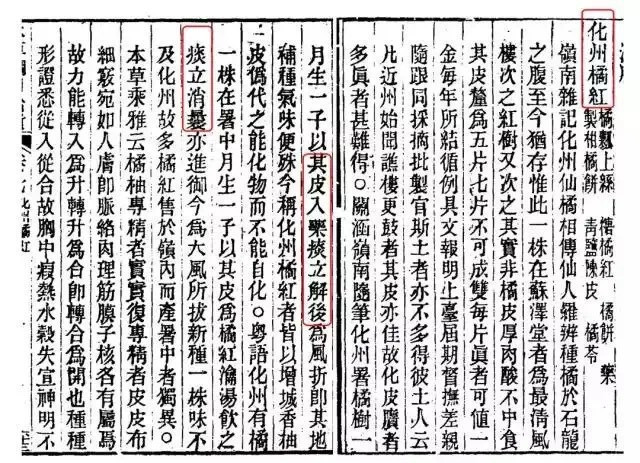 化州橘紅 橘瓤上絲 橘紅 橘餅 藥
製柑橘餅 青鹽陳皮 橘苓
嶺南雜記化州仙橘相傳仙人羅辨種橘於石龍
之腹至今猶存惟此一株在蘇澤堂者為最清風
樓次之紅樹又次之其實非橘皮厚肉酸不中食
其皮釐為五片七片不可成雙每片眞者可值一
金每年所結循例具文報明上臺屆期督撫差親
隨跟同採摘批製官斯土者亦不多得彼土人云
凡近州始聞譙樓更鼓者其皮亦佳故化皮贗者
多眞者甚難得○關涵嶺南隨筆化州署橘樹一
月生一子以其皮入藥痰立解後為風折即其地
補種氣味便殊今稱化州橘紅者皆以增城香柚
皮僞代之能化物而不能自化○粤語化州有橘
一株在署中月生一子以其皮為橘紅瀹湯飲之
痰立消曩亦進御今為大風所拔新種一株味不
及化州故多橘紅售於嶺內而產署中者獨異○
本草乘雅云橘柚專精者實實復專精者皮皮布
細竅宛如人膚即脈絡肉理筋膜子核各有屬焉
故力能轉入為升轉升為合即轉合為開也種種
形證悉從入從合故胸中瘕熱水穀失宣神明不